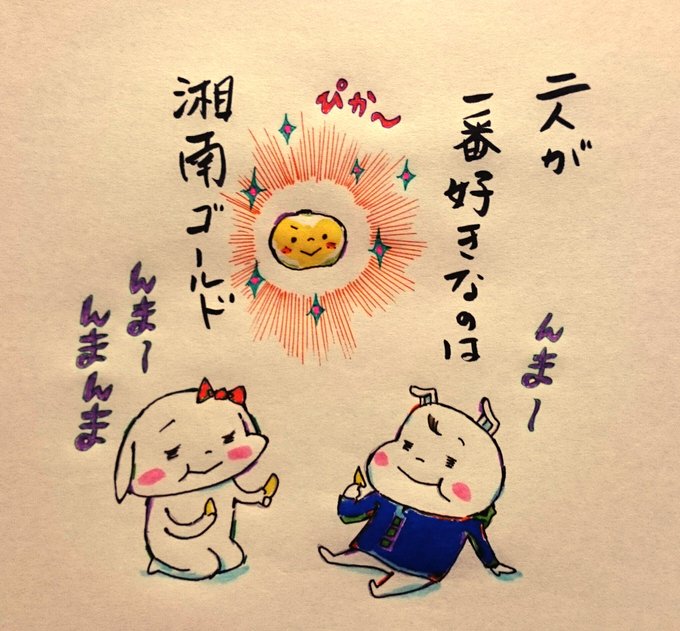 二人が
一番好きなのは
ぴか〜
湘南ゴールド
んま〜
んま〜
んまんま